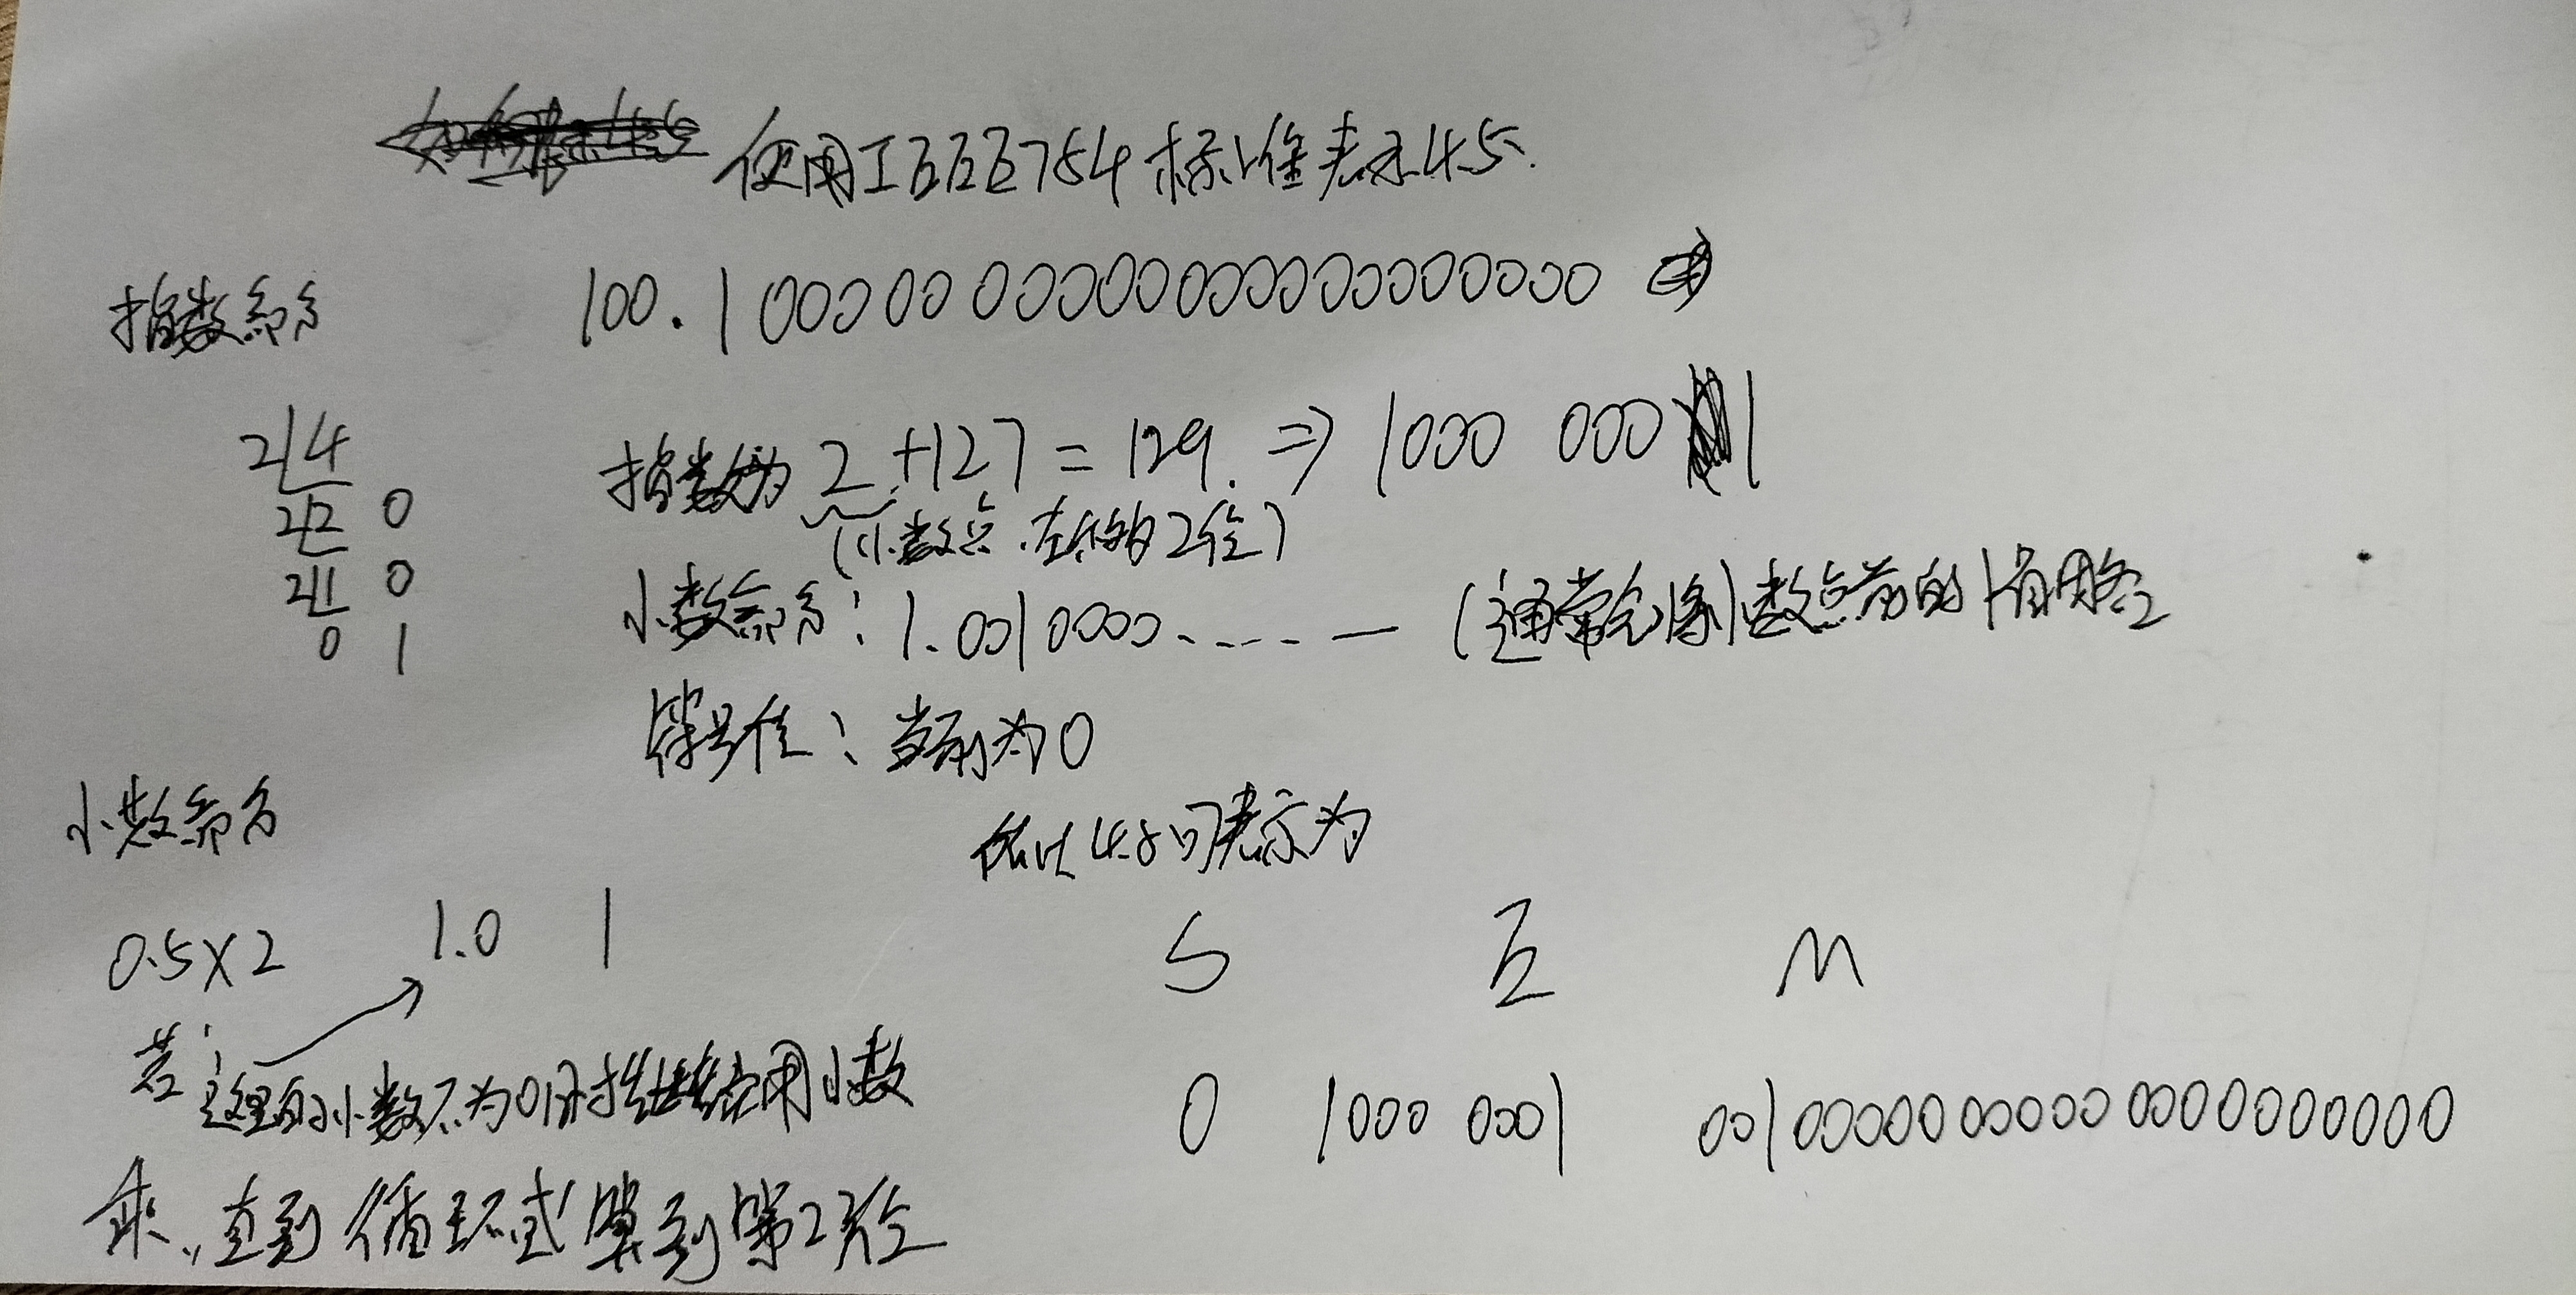 使用IEEE754标准表示4.5.
100.1000000000000000000000
指数部分
2 4
2 2 0
2 1 0
0 1
指数为 2+127=129. ⇒ 1000 0001
(小数点左移的2位)
小数部分: 1.0010000....... (通常会将小数点前的1省略
符号位: 当前为0
所以4.5可表示为
小数部分
0.5×2 1.0 1
S E M
若这里的小数不为0时 用小数
0 1000 0001 00100000000000000000000
乘,直到循环或算到第23位